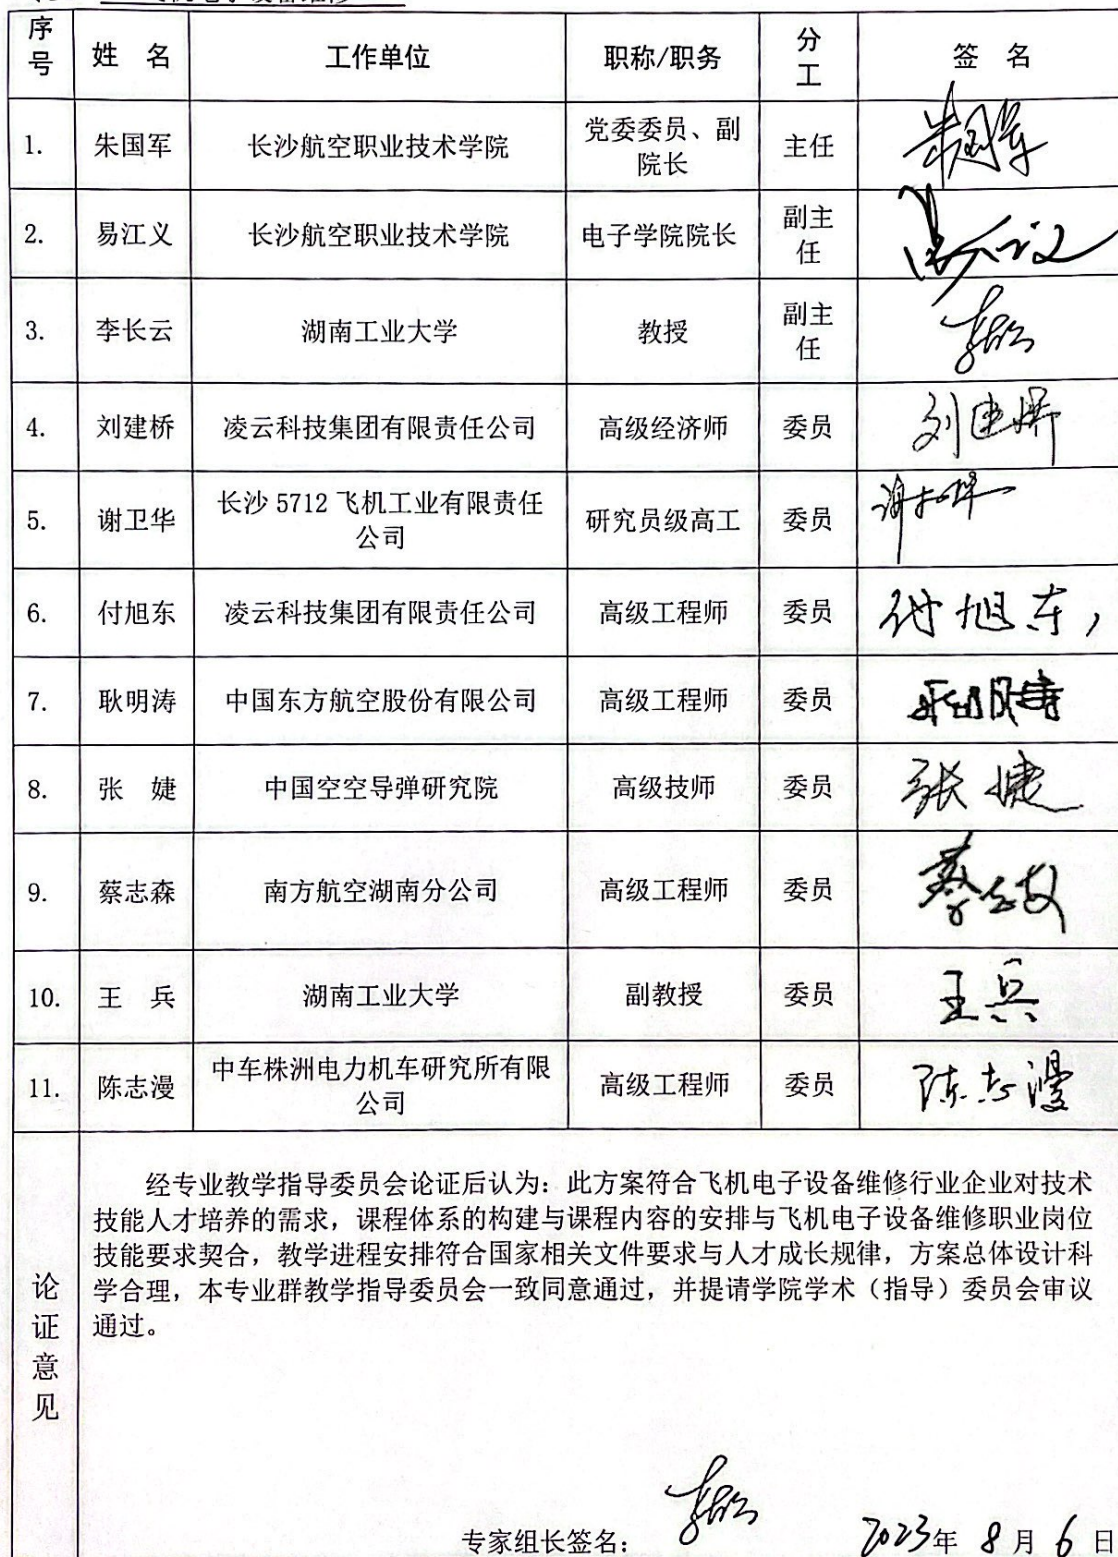 飞机电子设备维修
序号 姓 名 工作单位 职称/职务 分工 签 名
1. 朱国军 长沙航空职业技术学院 党委委员、副院长 主任 朱国军
2. 易江义 长沙航空职业技术学院 电子学院院长 副主任
3. 李长云 湖南工业大学 教授 副主任
4. 刘建桥 凌云科技集团有限责任公司 高级经济师 委员 刘建桥
5. 谢卫华 长沙 5712 飞机工业有限责任公司 研究员级高工 委员 谢卫华
6. 付旭东 凌云科技集团有限责任公司 高级工程师 委员 付旭东
7. 耿明涛 中国东方航空股份有限公司 高级工程师 委员 耿明涛
8. 张 婕 中国空空导弹研究院 高级技师 委员 张婕
9. 蔡志森 南方航空湖南分公司 高级工程师 委员
10. 王 兵 湖南工业大学 副教授 委员 王兵
11. 陈志漫 中车株洲电力机车研究所有限公司 高级工程师 委员 陈志漫
论证意见
经专业教学指导委员会论证后认为：此方案符合飞机电子设备维修行业企业对技术
技能人才培养的需求，课程体系的构建与课程内容的安排与飞机电子设备维修职业岗位
技能要求契合，教学进程安排符合国家相关文件要求与人才成长规律，方案总体设计科
学合理，本专业群教学指导委员会一致同意通过，并提请学院学术（指导）委员会审议
通过。
专家组长签名： 2023年 8 月 6 日